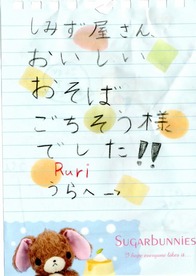 しみず屋さん
おいしい
おそば
ごちそう様
でした!!
Ruri
うらへ→
SUGARBUNNIES